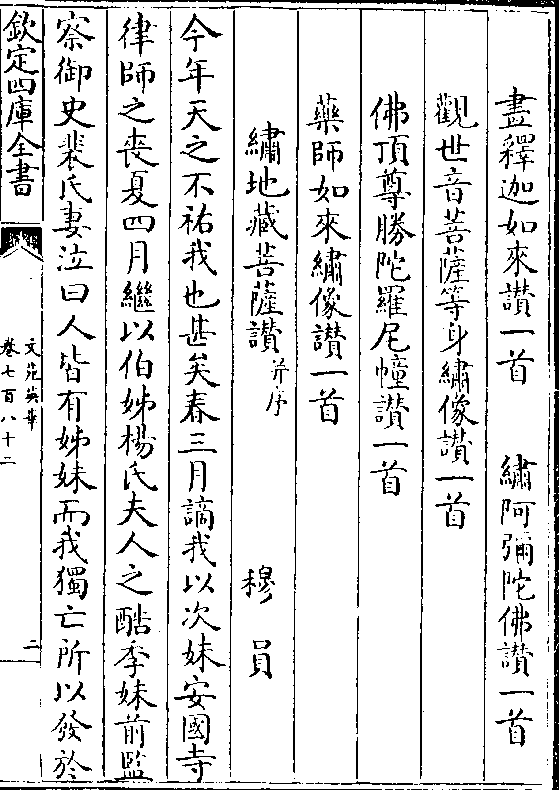 畫釋迦如來讃一首　繡阿彌陀佛讃一首
觀世音菩薩等身繡像讃一首
佛頂尊勝陀羅尼幢讃一首
藥師如來繡像讃一首
繡地藏菩薩讃 并序　穆員
今年天之不祐我也甚矣春三月謫我以次妹安國寺
律師之喪夏四月繼以伯姊楊氏夫人之酷季妹前監
察御史裴氏妻泣曰人皆有姊妹而我獨亡所以發於
欽定四庫全書
文苑英華
卷七百八十二
二